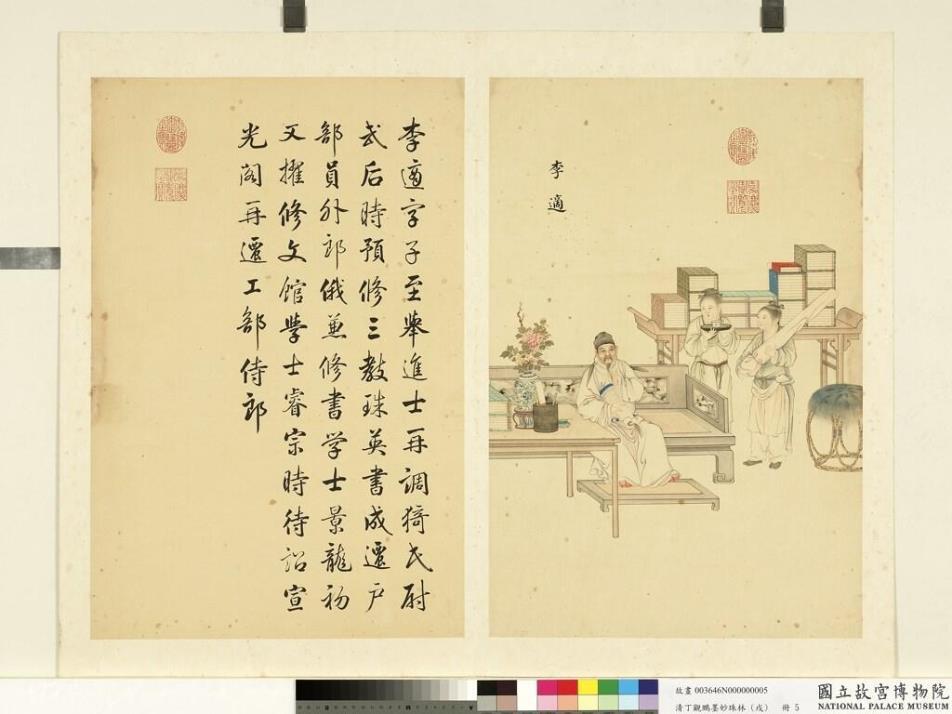 李適
李適字子至舉進士再調猗氏尉
武后時預修三教珠英書成遷戶
部員外郎俄兼修書学士景龍初
又擢修文館學士睿宗時待詔宣
光閣再遷工部侍郎
故畫 003646N000000005
清丁觀鵬墨妙珠林(戌) 冊 5
國立故宮博物院
NATIONAL PALACE MUSEUM